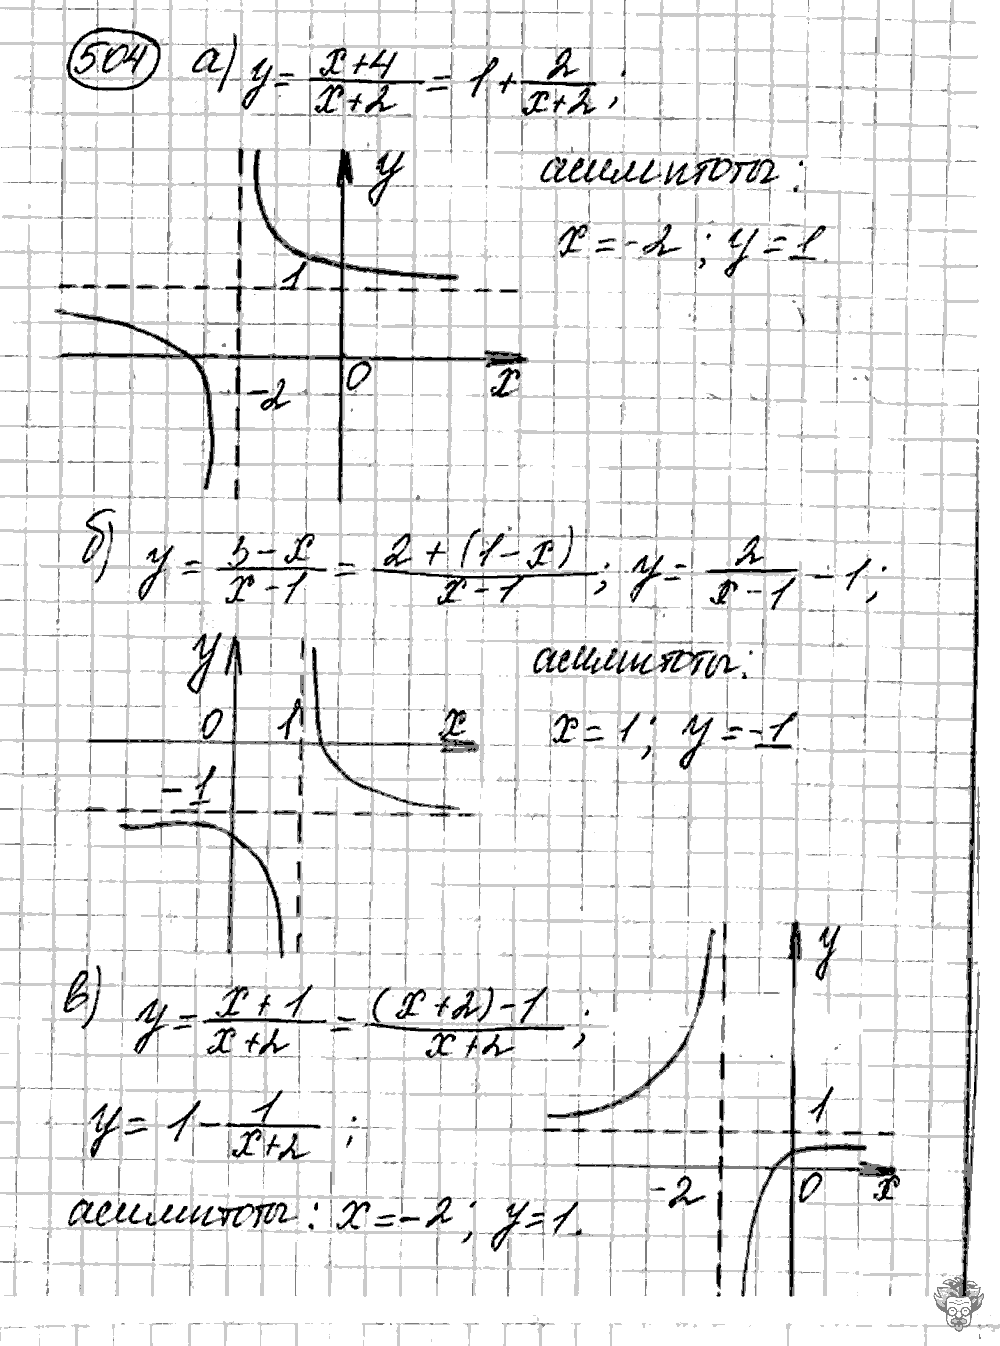 504 а) y = (x+4)/(x+2) = 1 + 2/(x+2);
y
асимптоты:
x = -2; y = 1.
1
0
x
-2
б) y = (3-x)/(x-1) = (2+(1-x))/(x-1); y = 2/(x-1) - 1;
y
асимптоты:
0 1 x
x = 1; y = -1
-1
y
в) y = (x+1)/(x+2) = ((x+2)-1)/(x+2);
y = 1 - 1/(x+2);
1
-2 0 x
асимптоты: x = -2; y = 1.